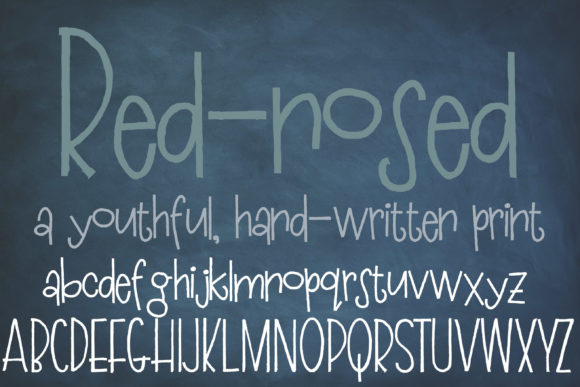 Red-nosed
a youthful, hand-written print
abcdefghijklmnopqrstuvwxyz
ABCDEFGHIJKLMNOPQRSTUVWXYZ